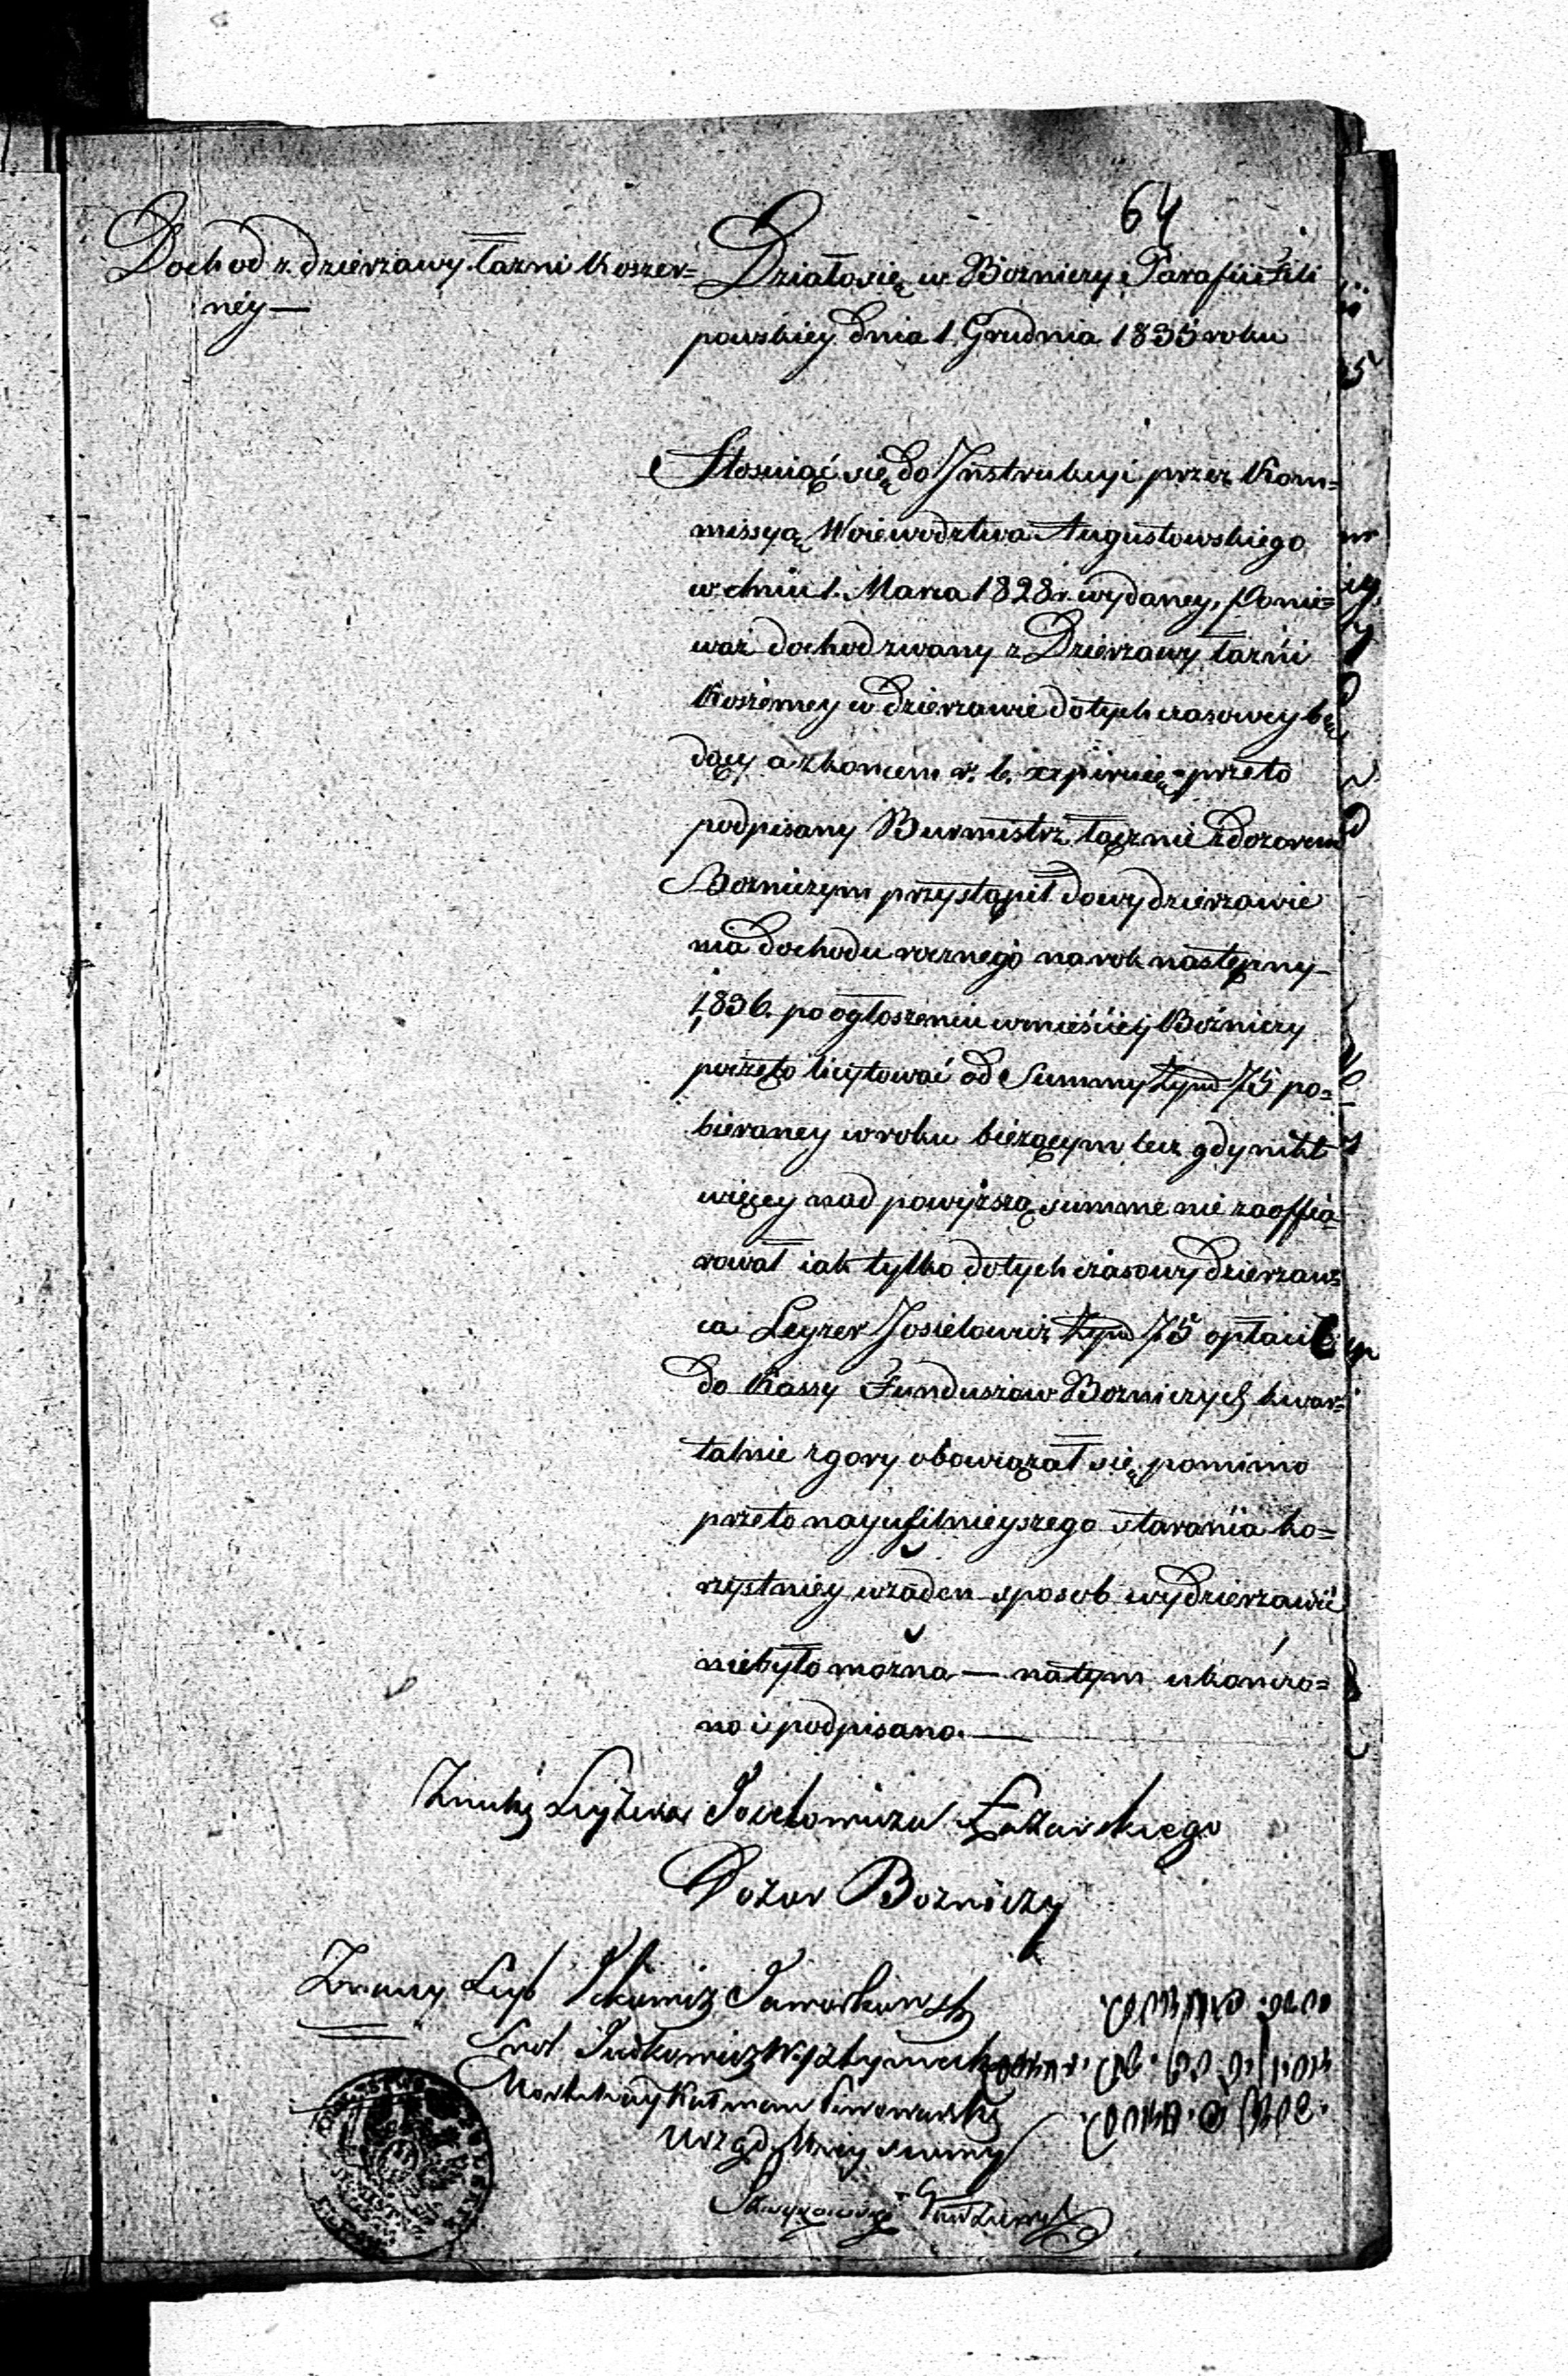 64
Dochod z dzierzawy łazni Koszer=
ney —
Działo się w Bożnicy i Parafii Fili
powskiey dnia 1. Grudnia 1835 roku
Stosuiąć się do Instrukcyi przez Kom=
missyą Woiewodztwa Augustowskiego
w dniu 1. Marca 1828 r. wydaney, Ponie=
waż dochod zwany z Dzierzawy łazni
Koszerney w dzierzawie dotychczasowey bę
dący a z koncem r. b. expiruie przeto
podpisany Burmistrz łącznie z dozorem
Bozniczym przystąpił do wydzierzawie
nia dochodu rocznego na rok następny
1836. po ogłoszeniu w mieście y Bożnicy
poczęto licytować od Summy 75 po=
bieraney w roku bieżącym lecz gdy nikt
więcey nad powyższą summe nie zaoffia
rował iak tylko dotychczasowy dzierzaw
ca Leyzer Josielowicz 75 opłacić
do Kassy Funduszow Bozniczych kwar=
talnie z gory obowiązał się, pomimo
przeto nayusilnieyszego starania ko=
rzystniey w żaden sposob wydzierzawić
niebyło można — na tym ukończo=
no i podpisano. —
Znaki Leyzera Josielowicza
Dozor Bozniczy
Leyb Jckowicz
Judkowicz
Kałman
Urząd Mieyscowy